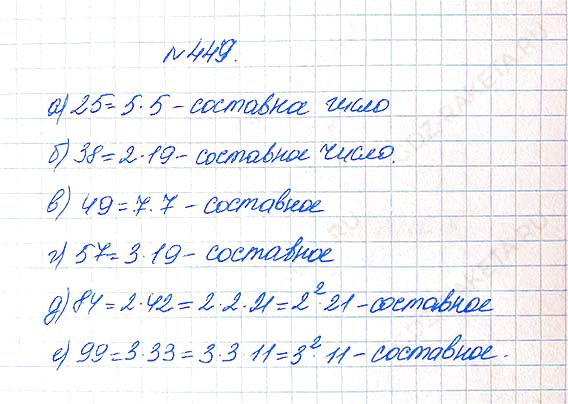 №449.
а) 25=5·5 - составное число
б) 38=2·19 - составное число.
в) 49=7·7 - составное
г) 57=3·19 - составное
д) 84=2·42=2·2·21=2²·21 - составное
е) 99=3·33=3·3·11=3²·11 - составное.